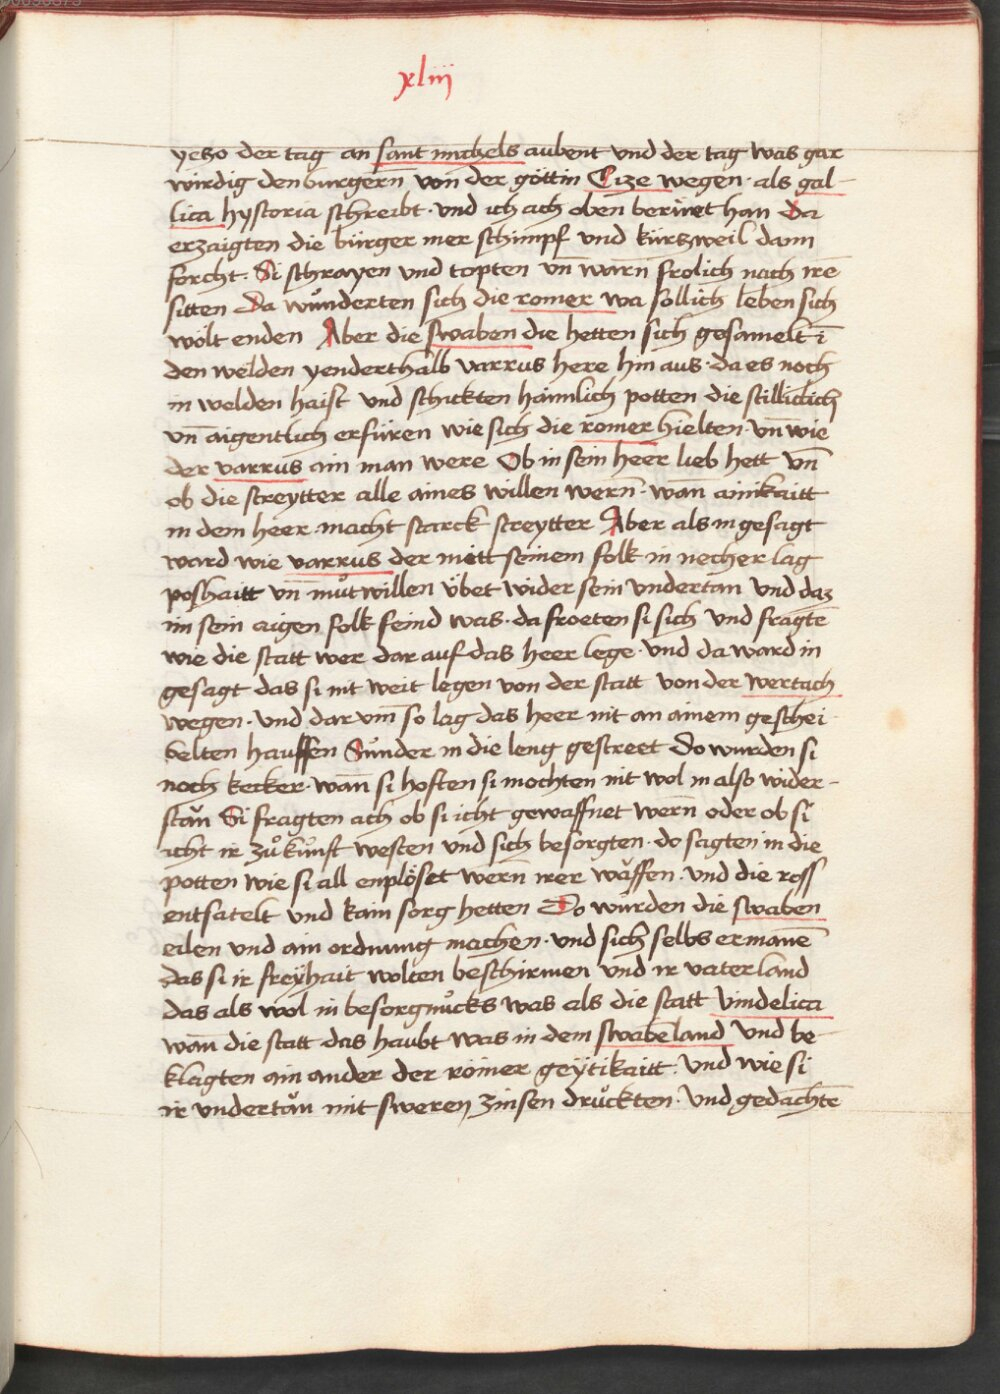 xliij
yeso der tag an sant michels aubent vnd der tag was gar
wirdig den burgern̄ von der göttin Cize wegen · als gal-
lica hystoria schreibt · vnd ich ach oben berüret han Da
erzaigten die bürger mer schimpf vnd kürszweil dann
forcht · Si schrayen vnd topten vn̄ warn frolich nach irē
sitten Da wůnderten sich die romer wa sollich leben sich
wölt enden Aber die swaben die hetten sich gesamelt ī
den welden yenderthalb varrus here hin aus · da es noch
in welden haist vnd schickten haimlich potten die stillicich
vn̄ aigentlich erfüren wie sich die römer hielten · vn̄ wie
der varrus ain man were Ob in sein heer lieb hett vn̄
ob die streytter alle aines willen wern̄ · wan̄ ainikaitt
in dem heer macht starck streytter Aber als in gesagt
ward wie varrus der mitt seinem folk in necher lag
poshaitt vn̄ můtwillen übet wider sein vndertan vnd daz
im sein aigen folk feind was · da froeten si sich vnd fragtē
wie die statt wer dar auf das heer lege · vnd da ward in
gesagt das si nit weit legen von der statt von der wertach
wegen · vnd dar vm̄ so lag das heer nit an ainem geschei
belten hauffen Sůnder in die leng gestreet Do wurden si
noch kecker · wan̄ si hoften si mochten nit wol in also wider-
stan̆ Si fragten ach ob si icht gewaffnet wern̄ oder ob si
icht ir zůkůnft westen vnd sich besorgten · do sagten in die
potten wie si all enplöset wern̄ irer wäffen · vnd die ross
entsatelt vnd kain sorg hetten Do wurden die swaben
eilen vnd ain ordnung machen · vnd sich selbs ermanē
das si ir freÿhait wolten beschirmen vnd ir vaterland
das als wol in besorgnůcks was als die statt vindelica
wan̄ die statt das haubt was in dem swabēland vnd be-
klagten ain ander der römer geÿtikaitt · vnd wie si
ir vndertan̆ mit sweren zinsen drůckten · vnd gedachtē